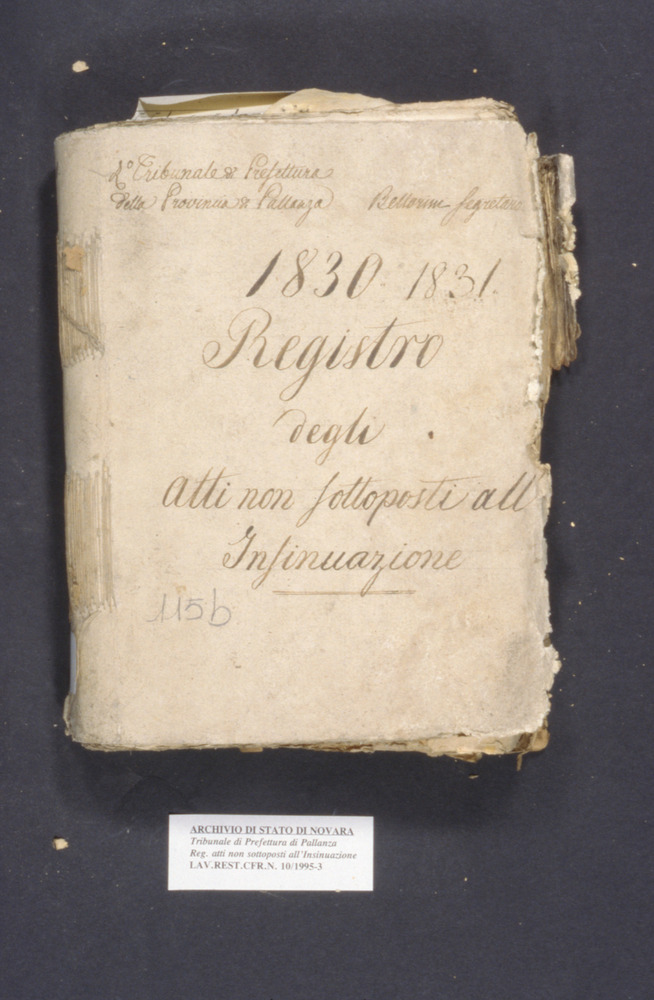 L° Tribunale di Prefettura
della Provincia di Pallanza
Bellorini Segretaro
1830 1831.
Registro
degli
Atti non sottoposti all
Insinuazione
115b
ARCHIVIO DI STATO DI NOVARA
Tribunale di Prefettura di Pallanza
Reg. atti non sottoposti all'Insinuazione
LAV.REST.CFR.N. 10/1995-3